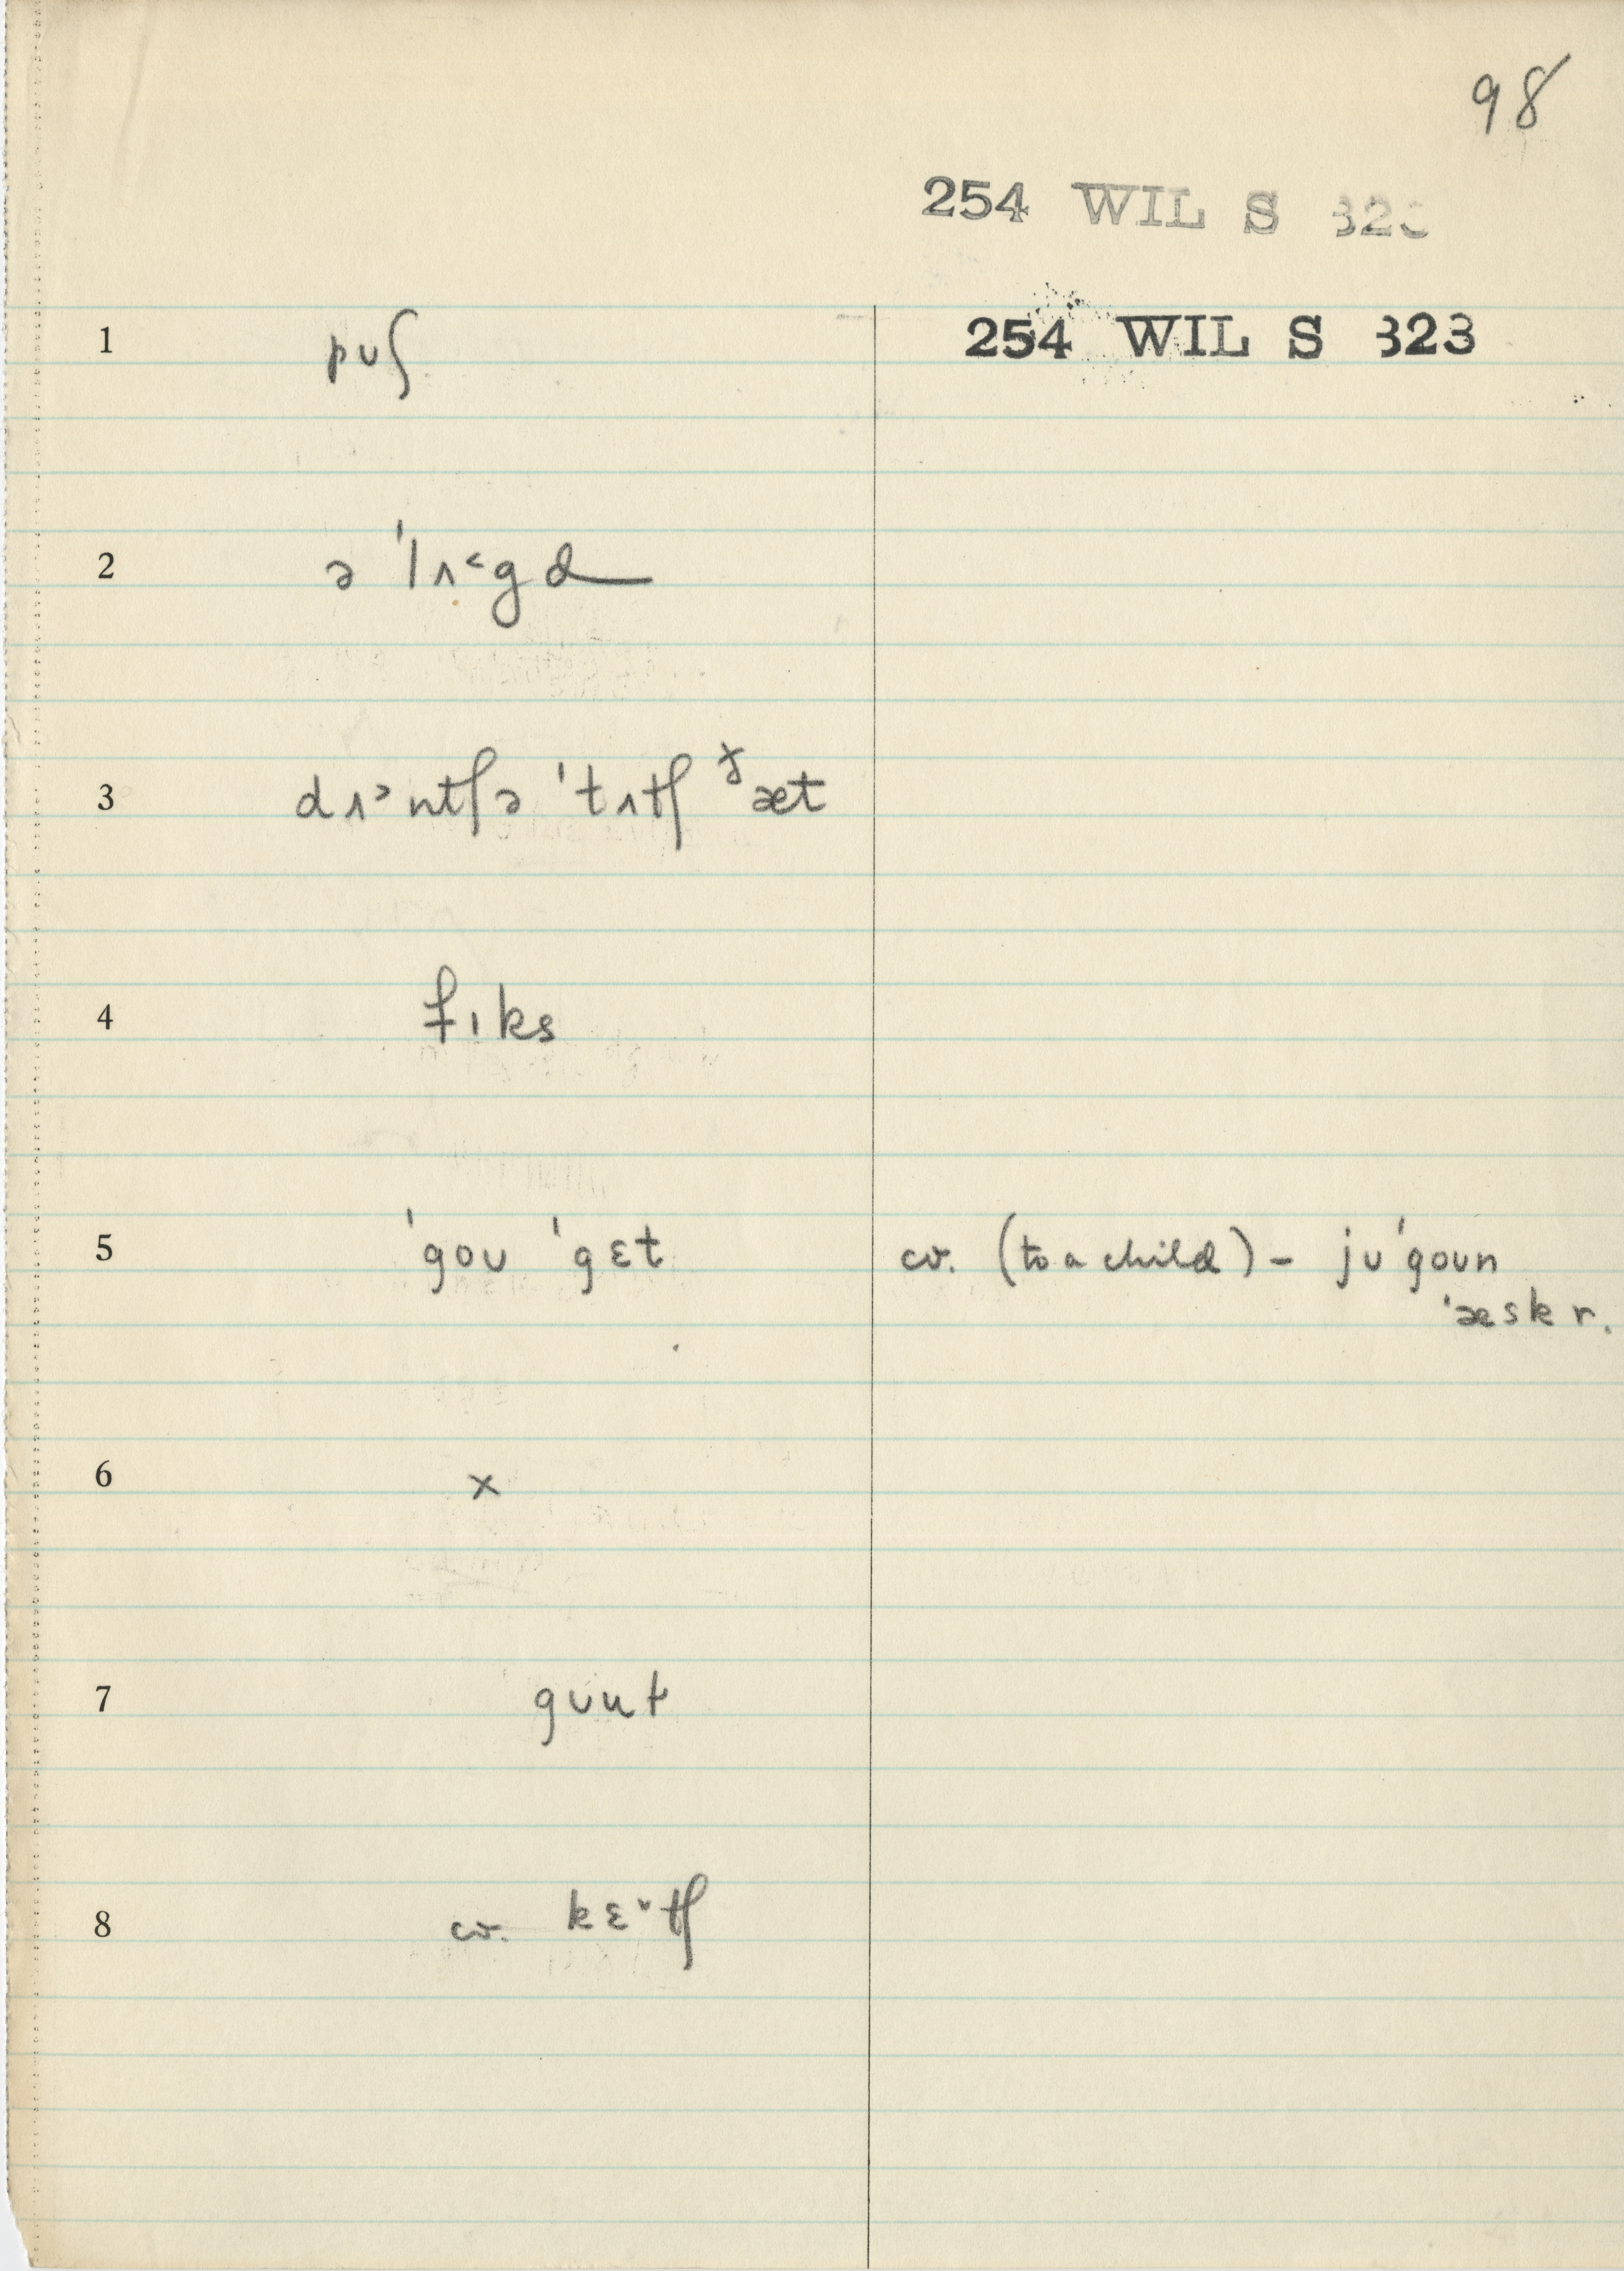 98
254 WIL S 323
254 WIL S 323
1 pʊʃ
2 ə ˈlʌ˂gd
3 dʌ˃ntʃə ˈtʌtʃ ɟæt
4 fɪks
5 ˈgoʊ ˈgɛt cv. (to a child) – jʊ ˈgoʊn
ˈæsk r.
6 x
7 gʊut
8 cv. kɛ˅tʃ